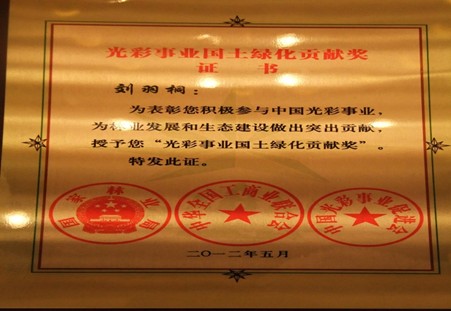 光彩事业国土绿化贡献奖
证 书
刘羽桐：
为表彰您积极参与中国光彩事业，
为林业发展和生态建设做出突出贡献，
授予您“光彩事业国土绿化贡献奖”。
特发此证。
国家林业局
中华全国工商业联合会
中国光彩事业促进会
二〇一二年五月